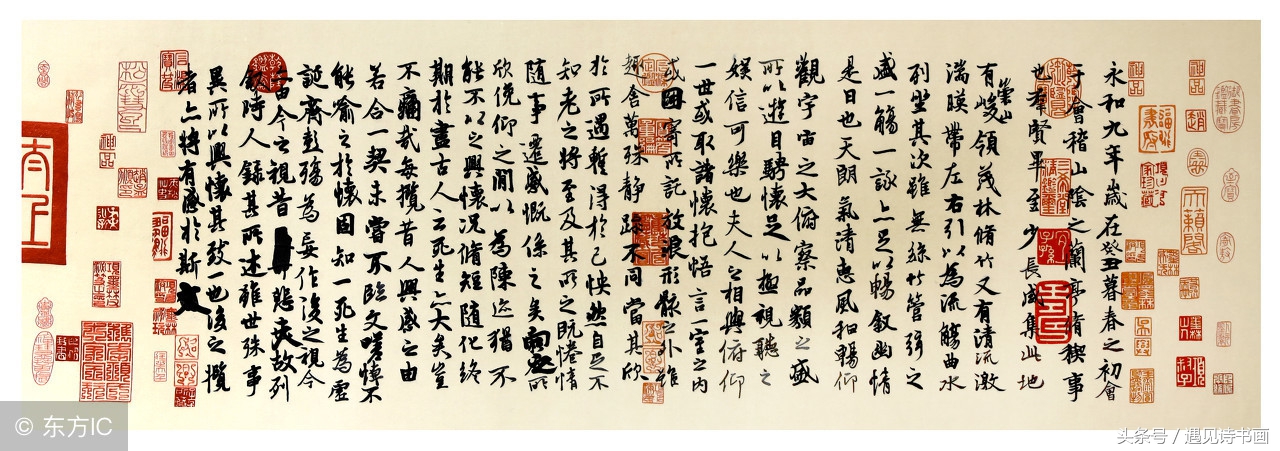 永和九年歲在癸丑暮春之初會
于會稽山陰之蘭亭脩稧事
也群賢畢至少長咸集此地
有崇山峻領茂林脩竹又有清流激
湍暎帶左右引以為流觴曲水
列坐其次雖無絲竹管弦之
盛一觴一詠亦足以暢敘幽情
是日也天朗氣清惠風和暢仰
觀宇宙之大俯察品類之盛
所以遊目騁懷足以極視聽之
娛信可樂也夫人之相與俯仰
一世或取諸懷抱悟言一室之內
或因寄所託放浪形骸之外雖
趣舍萬殊靜躁不同當其欣
於所遇暫得於己怏然自足不
知老之將至及其所之既惓情
隨事遷感慨係之矣向之所
欣俛仰之閒以為陳迹猶不
能不以之興懷況脩短隨化終
期於盡古人云死生亦大矣豈
不痛哉每攬昔人興感之由
若合一契未嘗不臨文嗟悼不
能喻之於懷固知一死生為虛
誕齊彭殤為妄作後之視今
亦由今之視昔悲夫故列
敘時人錄其所述雖世殊事
異所以興懷其致一也後之攬
者亦將有感於斯文
© 东方IC
头条号 / 遇见诗书画